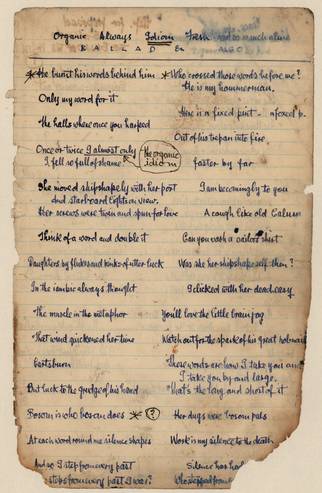 Organic Always Idiom Fresh and so much alive
BALLAD by ALGO
He burnt his words behind him
Who crossed those words before me?
He is my hammerman.
Only my word for it
Here is a fixed point
The halls where once you harped
Out of his trepan into fire
Once or twice I almost only
I fell so full of shame
the organic idiom
faster by far
She moved shipshapely with her port
And starboard lights on view.
I am becomingly to you
Her screws were twin and spun for love
A cough like old Calum
Think of a word and double it
Can you wash a sailor's shirt
Daughters by flukes and kinks of utter luck
Was she her shipshape self then?
In the iambic always thought
I clicked with her dead easy
The muscle in the metaphor
You'll love the little brain fog
That wind quickened her tune
Watch out for the spark of his great
These words are how I take you and
I take you by and large.
But luck to the grudge of his hand
That's the long and short of it
Bosom is who bosom does
Her dugs were bosom pals
At each word round me silence shapes
Work is my silence to the death
And so I step from every part
Silence has
steps from every part I was?
He stepped from